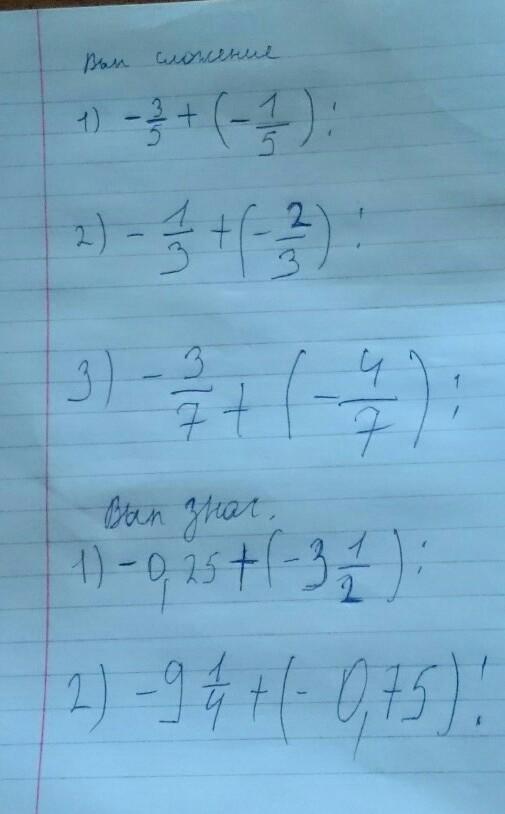 Вып сложение
1) -3/5 + (-1/5);
2) -1/3 + (-2/3);
3) -3/7 + (-4/7);
Вып знач.
1) -0,25 + (-3 1/2);
2) -9 1/4 + (-0,75);